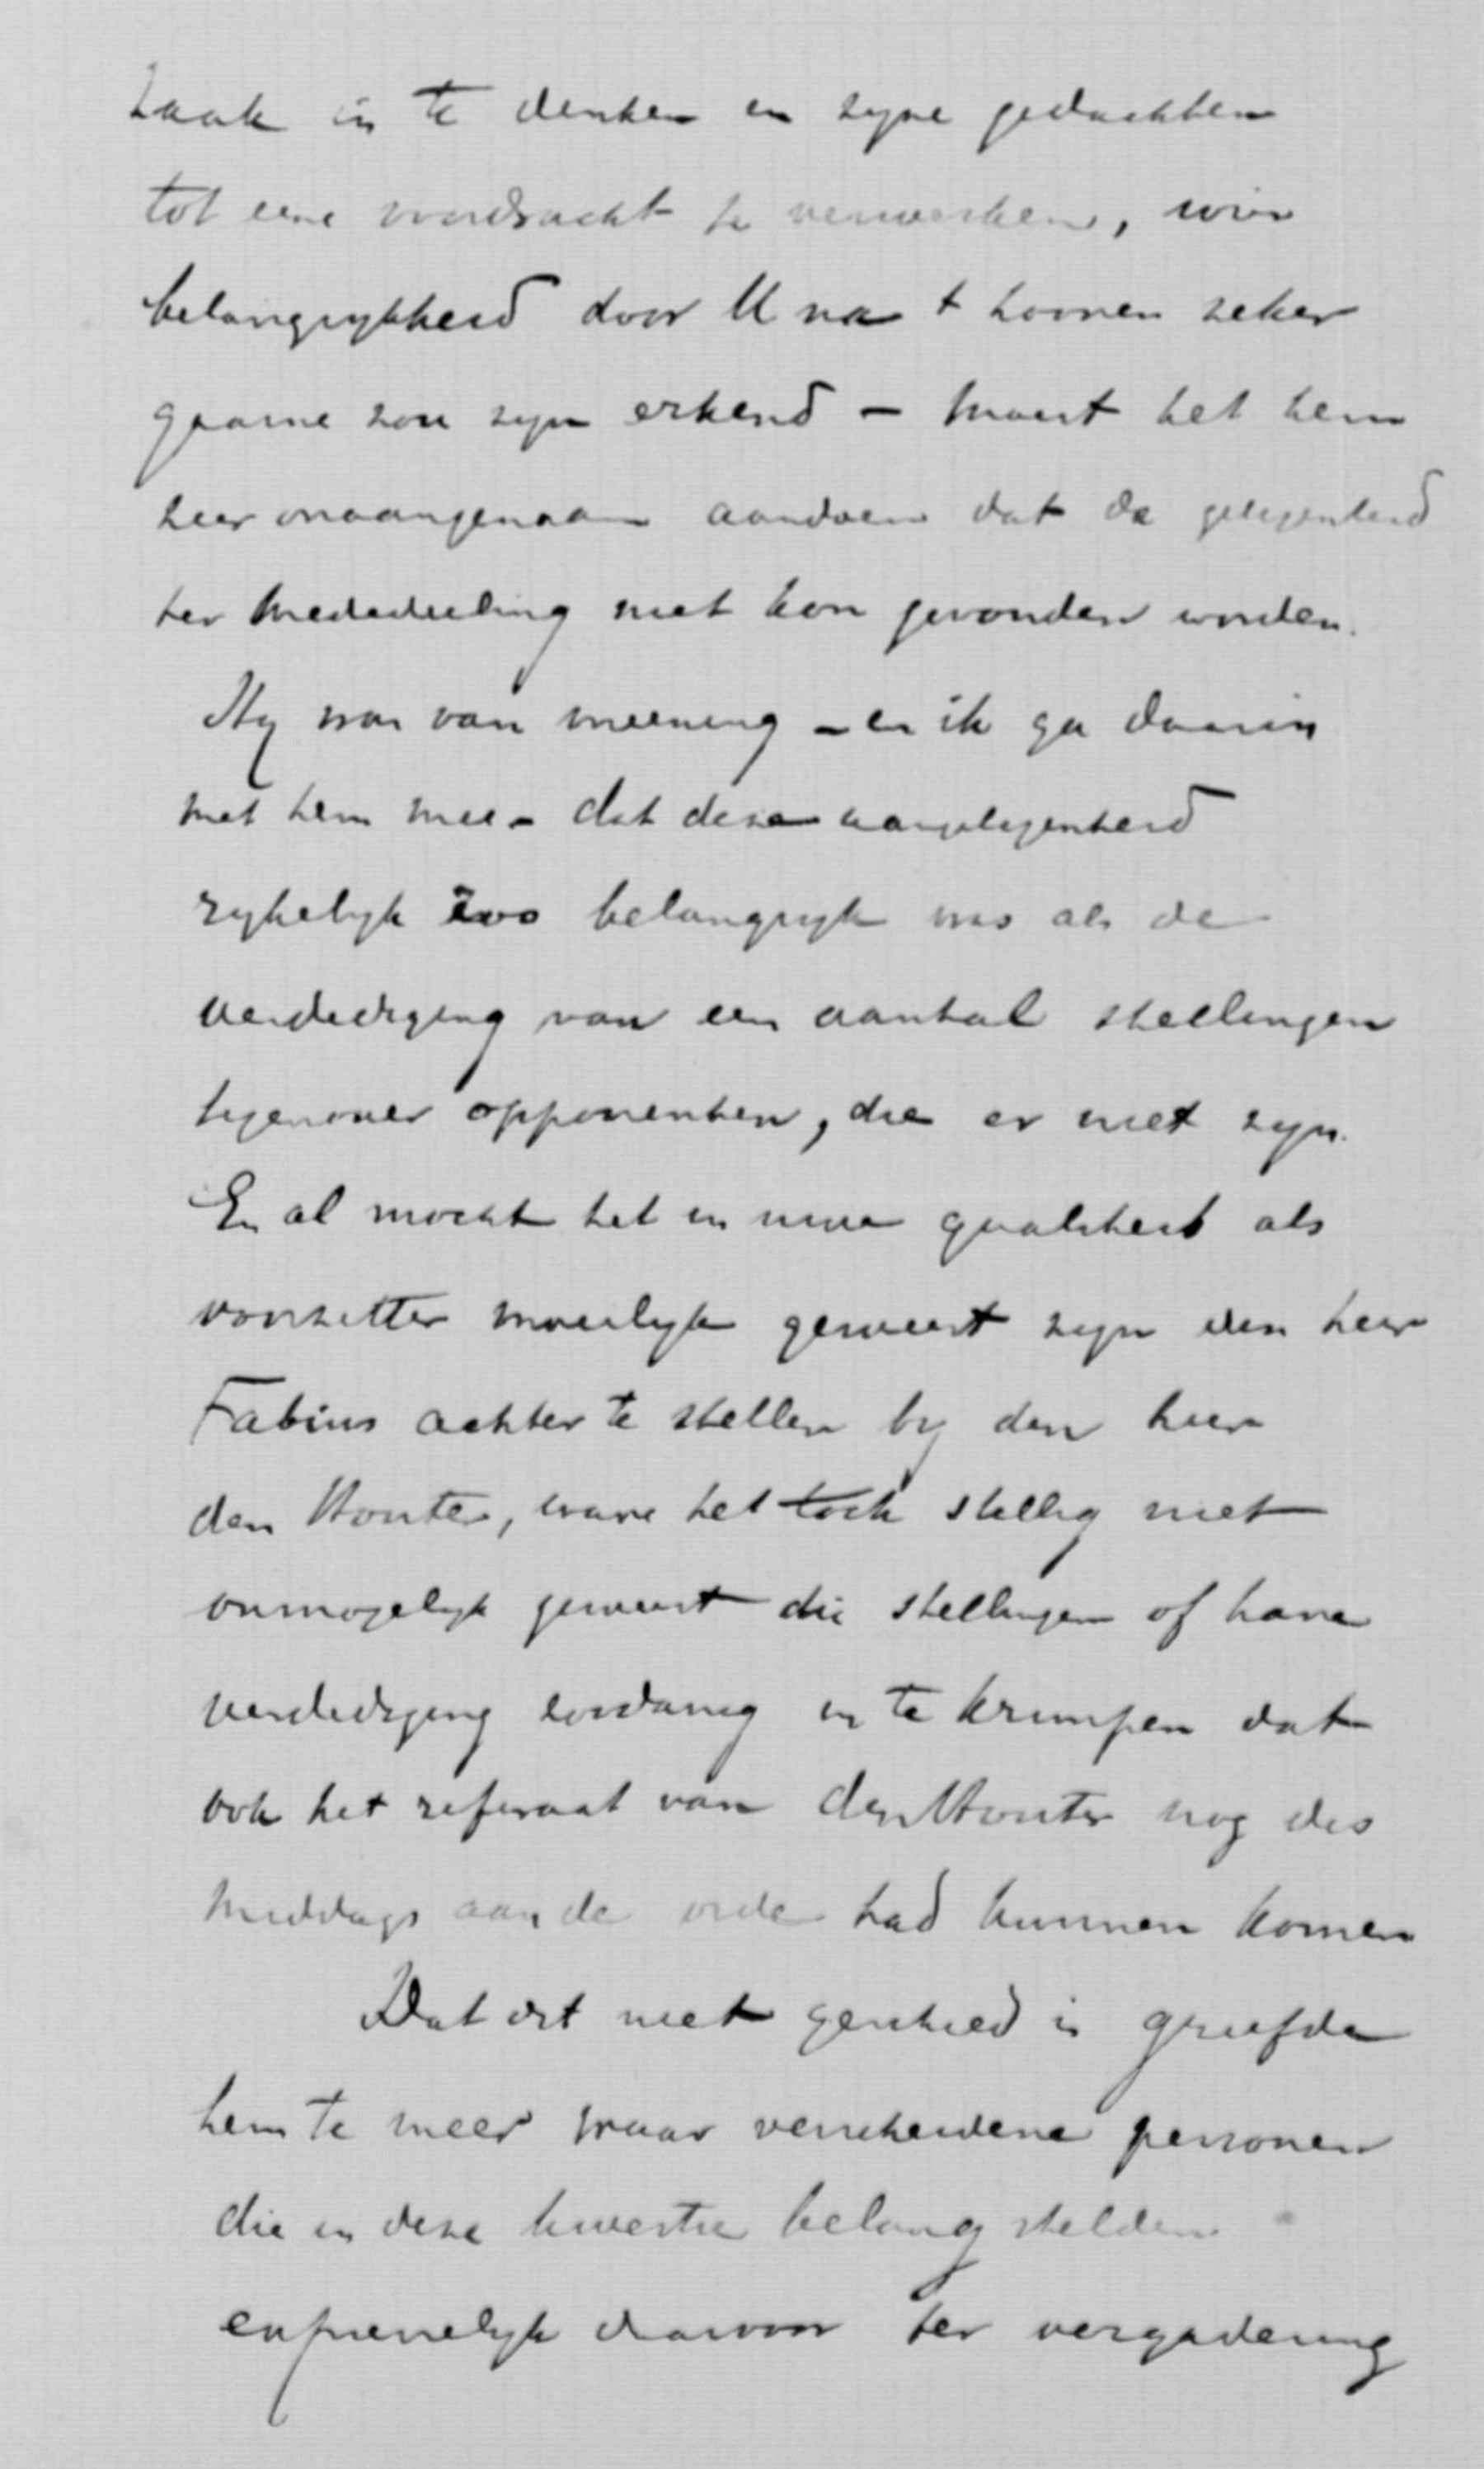 zaak in te denken en zyne gedachten
tot eene voordracht te verwerken, wier
belangrykheid door U na t hooren zeker
gaarne zou zyn erkend – moest het hem
zeer onaangenaam aandoen dat de gelegenheid
ter mededeeling niet kon gevonden worden.
Hy was van meening – en ik ga daarin
met hem mee – dat deze aangelegenheid
rykelyk zoo belangryk was als de
verdediging van een aantal stellingen
tegenover opponenten, die er niet zyn.
En al mocht het in uwe qualiteit als
voorzitter moeilyk geweest zyn den heer
Fabius achter te stellen by den heer
den Houter, ware het toch stellig niet
onmogelyk geweest die stellingen of hare
verdediging zoodanig in te krimpen dat
ook het referaat van den Houter nog des
middags aan de orde had kunnen komen
Dat dit niet geschied is griefde
hem te meer waar verscheidene personen
die in deze kwestie belang stelden
expresselyk daarvoor ter vergadering